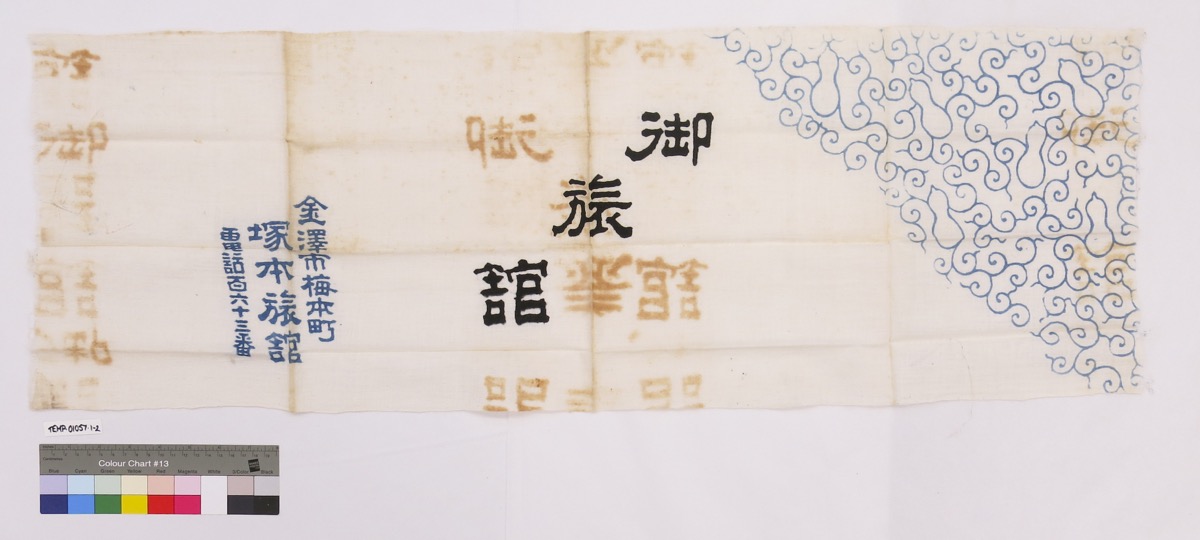 御旅舘
金澤市梅本町
塚本旅舘
電話百六十三番
TEMP.01057.1-2
Colour Chart #13
Blue Cyan Green Yellow Red Magenta White 3/Color Black